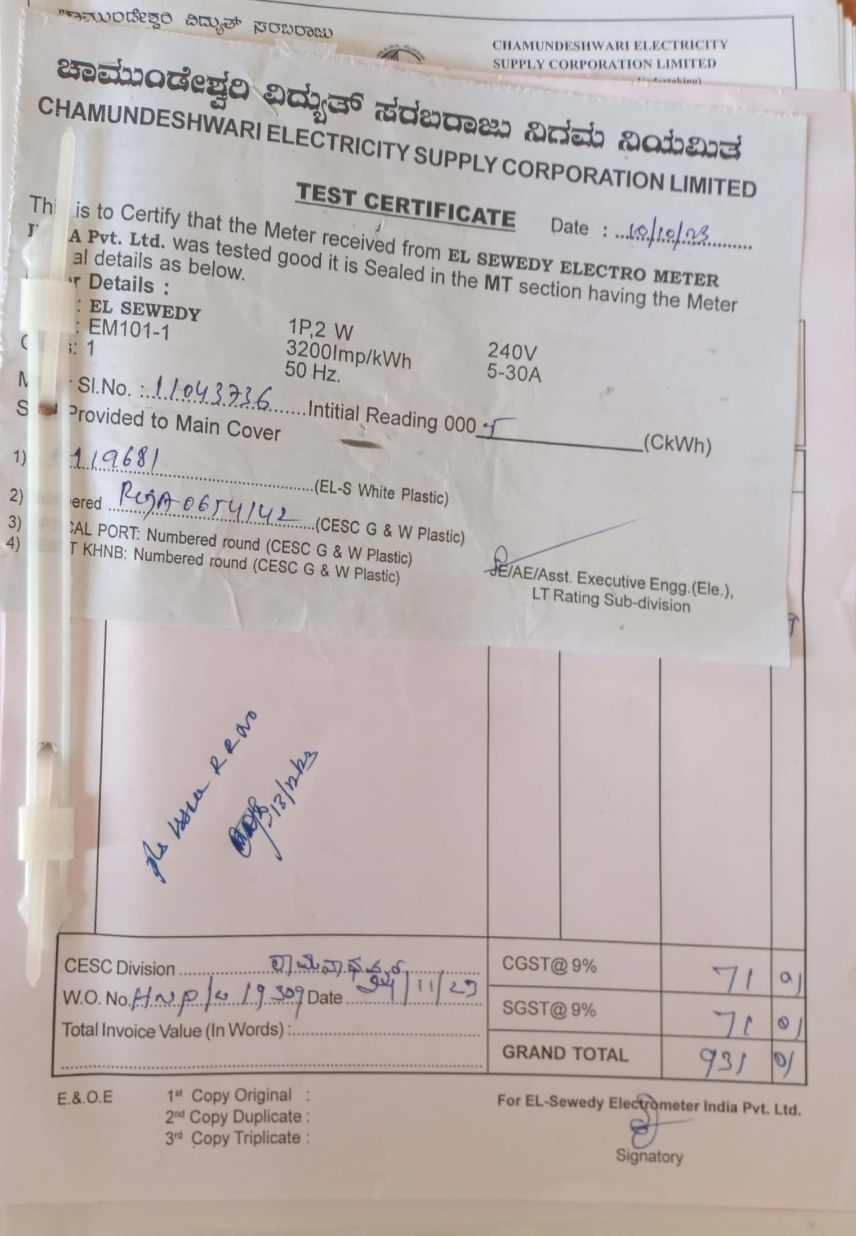 ಚಾಮುಂಡೇಶ್ವರಿ ವಿದ್ಯುತ್ ಸರಬರಾಜು
CHAMUNDESHWARI ELECTRICITY
SUPPLY CORPORATION LIMITED
ಚಾಮುಂಡೇಶ್ವರಿ ವಿದ್ಯುತ್ ಸರಬರಾಜು ನಿಗಮ ನಿಯಮಿತ
CHAMUNDESHWARI ELECTRICITY SUPPLY CORPORATION LIMITED
TEST CERTIFICATE
Date : 10/10/23
is to Certify that the Meter received from EL SEWEDY ELECTRO METER
A Pvt. Ltd. was tested good it is Sealed in the MT section having the Meter
al details as below.
r Details :
: EL SEWEDY
: EM101-1 1P,2 W 240V
: 1 3200Imp/kWh 5-30A
50 Hz.
Sl.No. : 11043736 Intitial Reading 000 5 (CkWh)
Provided to Main Cover
1) 119681 (EL-S White Plastic)
2) ered 0654142 (CESC G & W Plastic)
3) CAL PORT: Numbered round (CESC G & W Plastic)
4) T KHNB: Numbered round (CESC G & W Plastic)
JE/AE/Asst. Executive Engg.(Ele.),
LT Rating Sub-division
13/12/23
CESC Division
CGST@ 9% 71 01
W.O. No. 19309 Date /11/23
SGST@ 9% 71 01
Total Invoice Value (In Words) :
GRAND TOTAL 931 01
E.& O.E 1st Copy Original :
2nd Copy Duplicate :
3rd Copy Triplicate :
For EL-Sewedy Electrometer India Pvt. Ltd.
Signatory